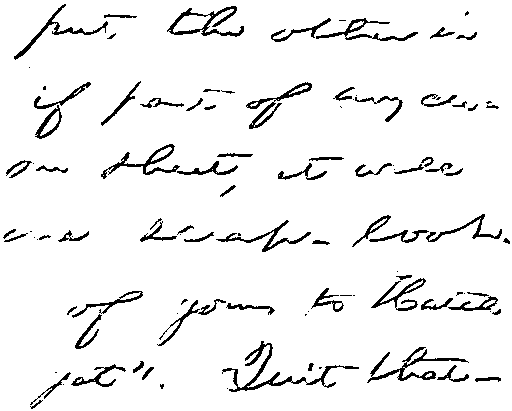 put, the other in
if part of any
on sheet, it will
scrap-book.
of yours to
yet". Quit that-